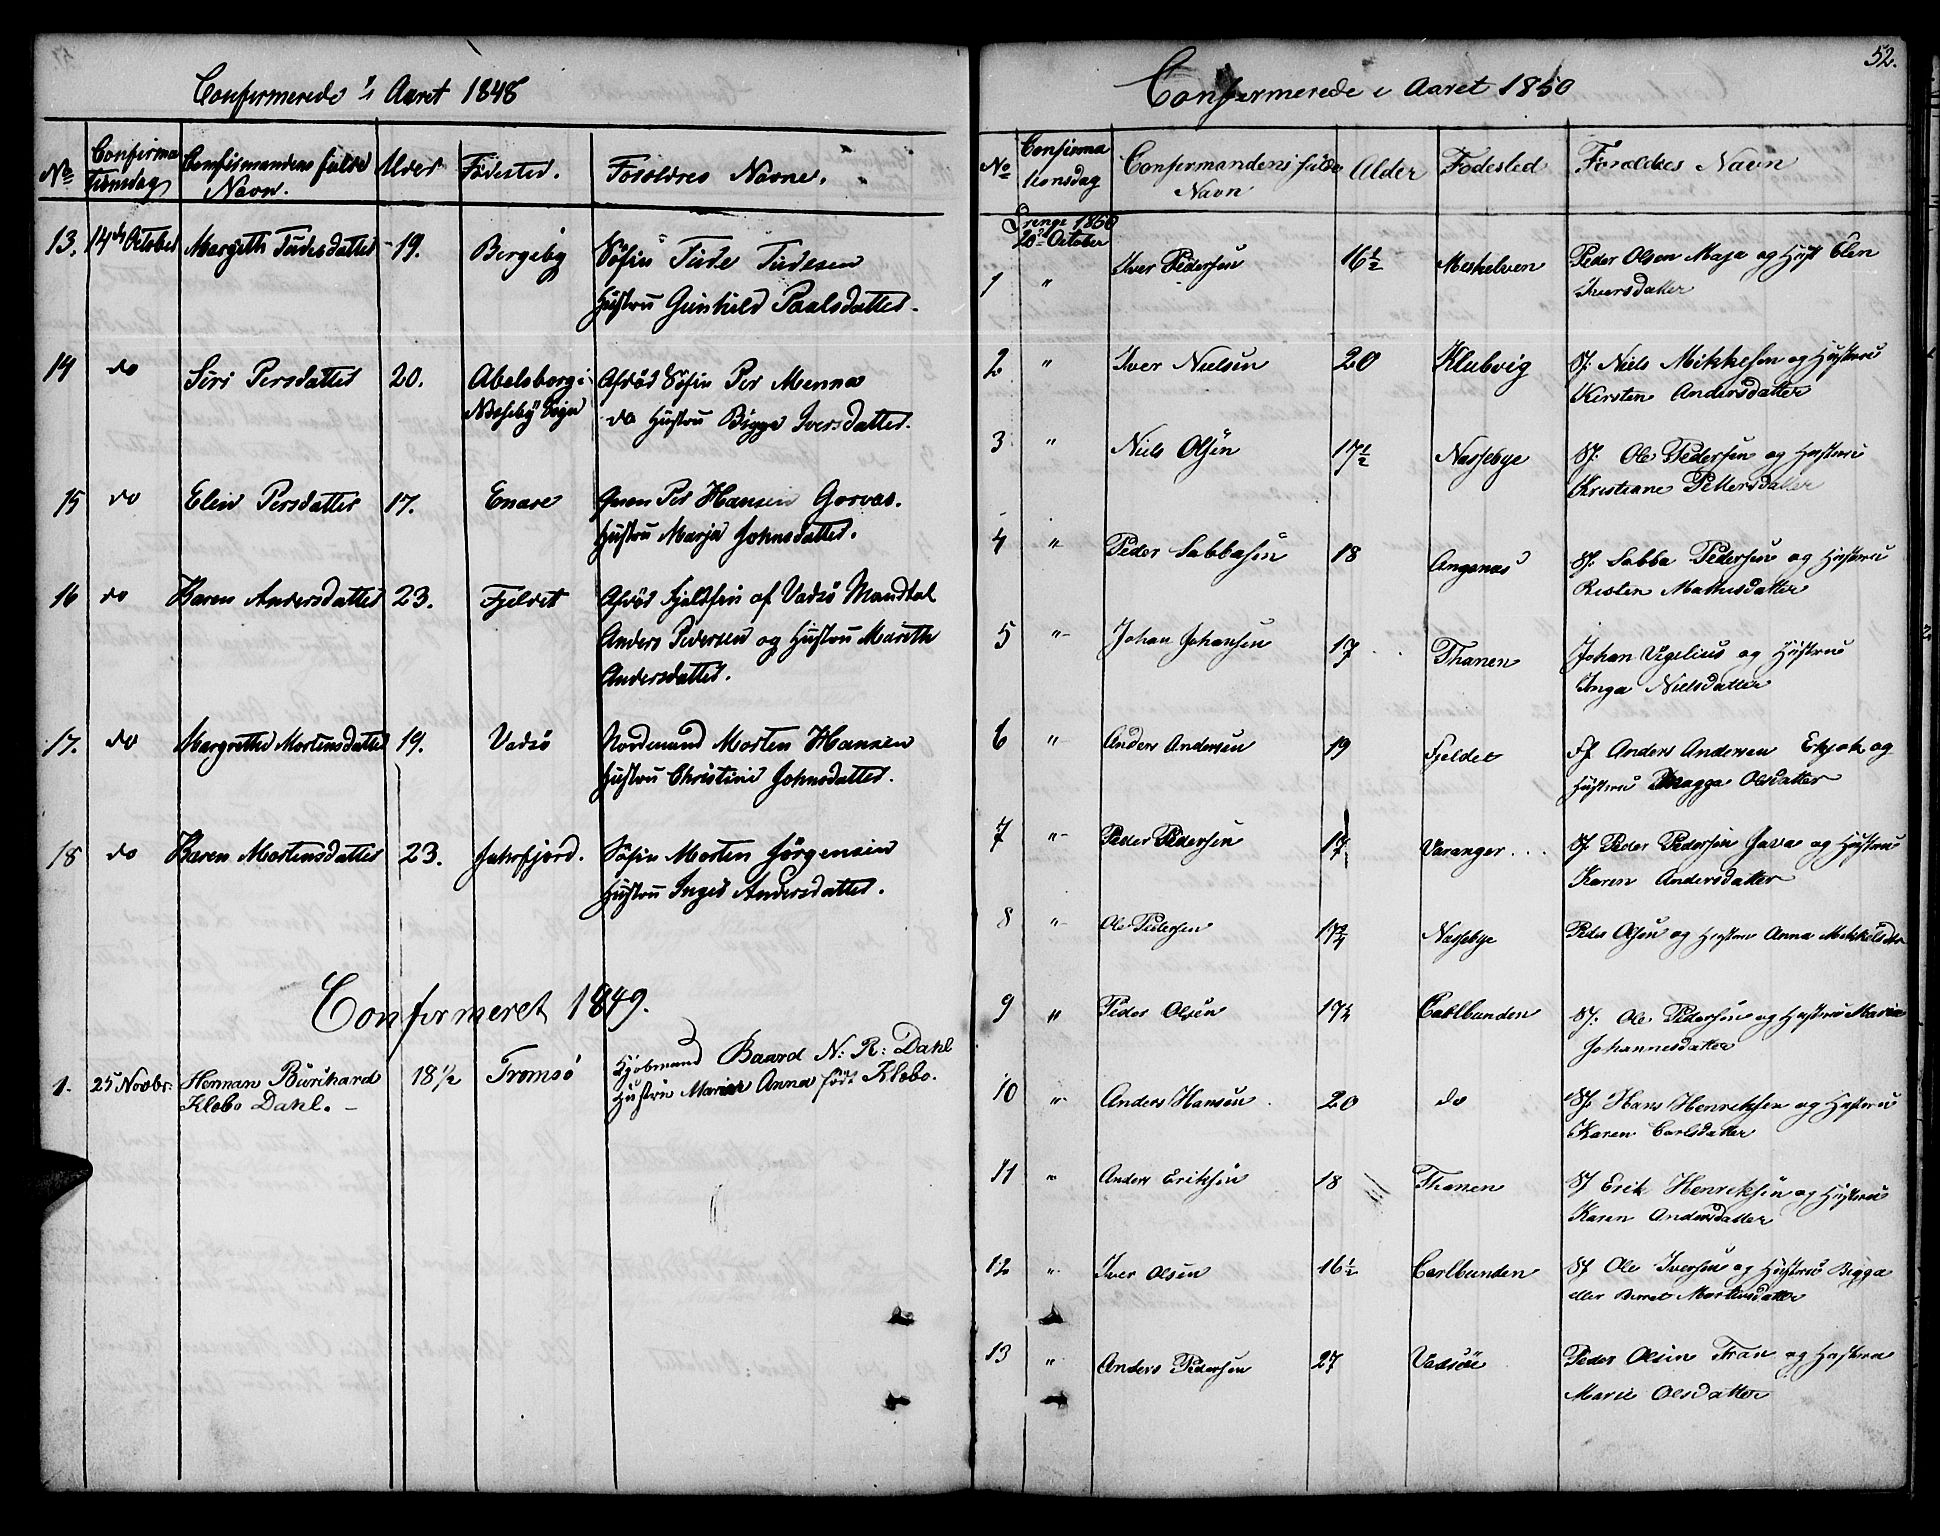 Confirmerede i Aaret 1848
No Confirmationsdag Confirmandens fulde Navn. Alder Födested. Forældres Navne.
13. 14de October Margeth Tudesdatter 19. Bergeby Söfin Tude Tudesen
Hustru Gunhild Paalsdatter.
14 do Siri Persdatter 20. Abelsborg i Afdöd Söfin Per Menna
Næseby Sogn do Hustru Bigga Iversdatter.
15 do Elen Persdatter 17. Enare Per Hansen Gorvas.
Hustru Marja Johnsdatter.
16 do Karen Andersdatter 23. Fjeldet Afdöd Fjeldfin af Vadsö Mandtal
Anders Pedersen og Hustru Mareth
Andersdatter.
17. do Margrethe Mortensdatter 19. Vadsö Nordmand Morten Hansen
Hustru Christine Johnsdatter.
18 do Karen Mortensdatter 23. Jahrfjord. Söfin Morten Jörgensen
Hustru Inger Andersdatter.
Confirmeret 1849.
1. 25 Novbr. Herman Burchard 18 1/2 Tromsö Kjöbmand Baard N: R: Dahl
Klæbo Dahl. – Hustru Maria Anna född Klæbo.
52.
Confirmerede i Aaret 1850
No Confirmationsdag Confirmandens fulde Navn Alder Fodested Forældres Navn
Drenge 1850
20de October
1 " Iver Pedersen 16½ Meskelven Peder Olsen Maja og Hust Elen
Iversdatter
2 " Iver Nielsen 20 Klubvig Sf. Niels Mikkelsen og Hustrue
Kirsten Andersdatter
3 " Niels Olsen 17½ Nassebye Sf. Ole Pedersen og Hustrue
Kristiane Pettersdatter
4 " Peder Sabbasen 18 Angenæs Sf. Sabba Pedersen og Hustrue
Risten Mathisdatter
5 " Johan Johansen 17 Thanen Johan Vigelius og Hustrue
Inga Nielsdatter
6 " Anders Andersen 19 Fjeldet Ff Anders Andersen og
Hustrue Magga Olsdatter
7 " Peder Pedersen 17 Varanger Sf Peder Pedersen Java og Hustrue
Karen Andersdatter
8 " Ole Pedersen 17¾ Nassebye Peder Olsen og Hustrue Anna Mikkelsdtr
9 " Peder Olsen 17½ Carlbunden Sf. Ole Pedersen og Hustrue Maria
Johannesdatter
10 " Anders Hansen 20 do Sf. Hans Henriksen og Hustrue
Karen Carlsdatter
11 " Anders Eriksen 18 Thanen Sf Erik Henriksen og Hustrue
Karen Andersdatter
12 " Iver Olsen 16½ Carlbunden Sf Ole Iversen og Hustrue Bigga
eller Berret Mortensdatter
13 " Anders Pedersen 27 Vadsöe Peder Olsen Fran og Hustrue
Marie Olsdatter